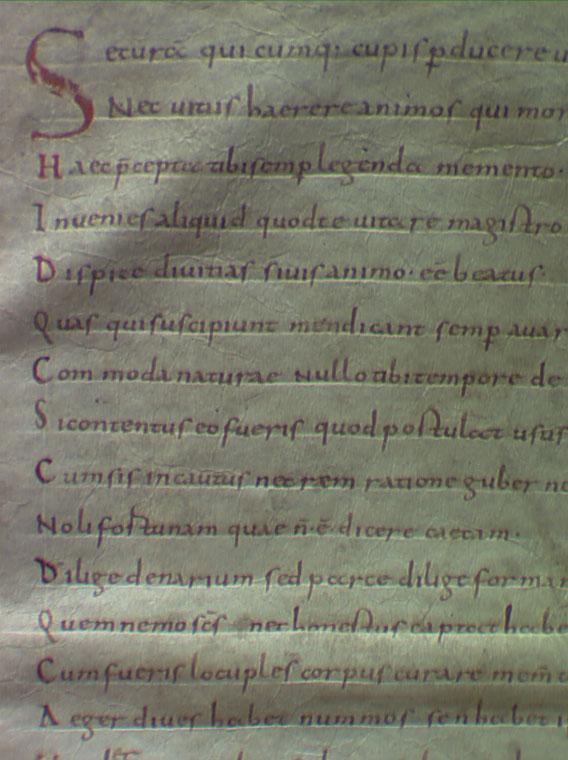 Securā qui cumq; cupis p̄ducere u
Nec uitiis haerere animos qui mor
Haec p̄cepta tibi semp legenda memento·
Inuenies aliquid quod te uitare magistro
Dispice diuitias si uis animo· eē beatus·
Quas qui suscipiunt mendicant semp auar
Commoda naturae nullo tibi tempore de
Si contentus eo fueris quod postulat usus
Cum sis incautus nec rem ratione guber n
Noli fortunam quae n̄·ē· dicere caecam·
Dilige denarium sed parce dilige forman
Quem nemo sc̄s nec honestus captat habe
Cum fueris locuples corpus curare mem̄
Aeger diues habet nummos sen habet i